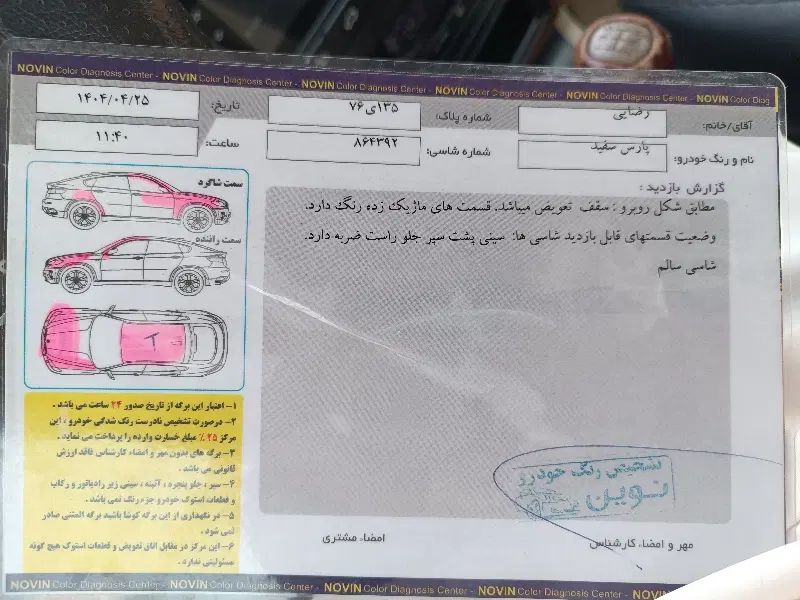 NOVIN Color Diagnosis Center - NOVIN Color Diagnosis Center - NOVIN Color Diagnosis Center - NOVIN Color Diagnosis Center - NOVIN Color Diagnosis Center - NOVIN Color Diag
آقای/خانم: رضایی
شماره پلاک: ۱۳۵ی۷۶
تاریخ: ۱۴۰۴/۰۴/۲۵
نام و رنگ خودرو: پارس سفید
شماره شاسی: ۸۶۴۳۹۲
ساعت: ۱۱:۴۰
گزارش بازدید :
مطابق شکل روبرو : سقف تعویض میباشد. قسمت های ماژیک زده رنگ دارد.
وضعیت قسمتهای قابل بازدید شاسی ها: سینی پشت سپر جلو راست ضربه دارد.
شاسی سالم
سمت شاگرد
سمت راننده
T
۱- اعتبار این برگه از تاریخ صدور ۲۴ ساعت می باشد .
۲- درصورت تشخیص نادرست رنگ شدگی خودرو ، این
مرکز ۲۵٪ مبلغ خسارت وارده را پرداخت می نماید .
۳- برگه های بدون مهر و امضاء کارشناس فاقد ارزش
قانونی می باشد .
۴- سپر ، جلو پنجره ، آئینه ، سینی زیر رادیاتور و رکاب
و قطعات استوک خودرو جزء رنگ نمی باشد .
۵- در نگهداری از این برگه کوشا باشید برگه المثنی صادر
نمی شود .
۶- این مرکز در مقابل اتاق تعویض و قطعات استوک هیچ گونه
مسئولیتی ندارد .
تشخیص رنگ خودرو
نوین
مهر و امضاء کارشناس
امضاء مشتری
NOVIN Color Diagnosis Center - NOVIN Color Diagnosis Center - NOVIN Color Diagnosis Center - NOVIN Color Diagnosis Center - NOVIN